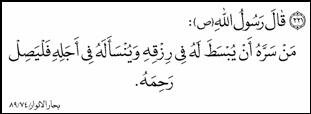 ﴿٢٢١﴾ قَالَ رَسُولُ اللهِ (ص):
مَنْ سَرَّهُ أَنْ يُبْسَطَ لَهُ فِي رِزْقِهِ وَيُنْسَأَ لَهُ فِي أَجَلِهِ فَلْيَصِلْ
رَحِمَهُ.
بحار الانوار ٨٩/٧٤